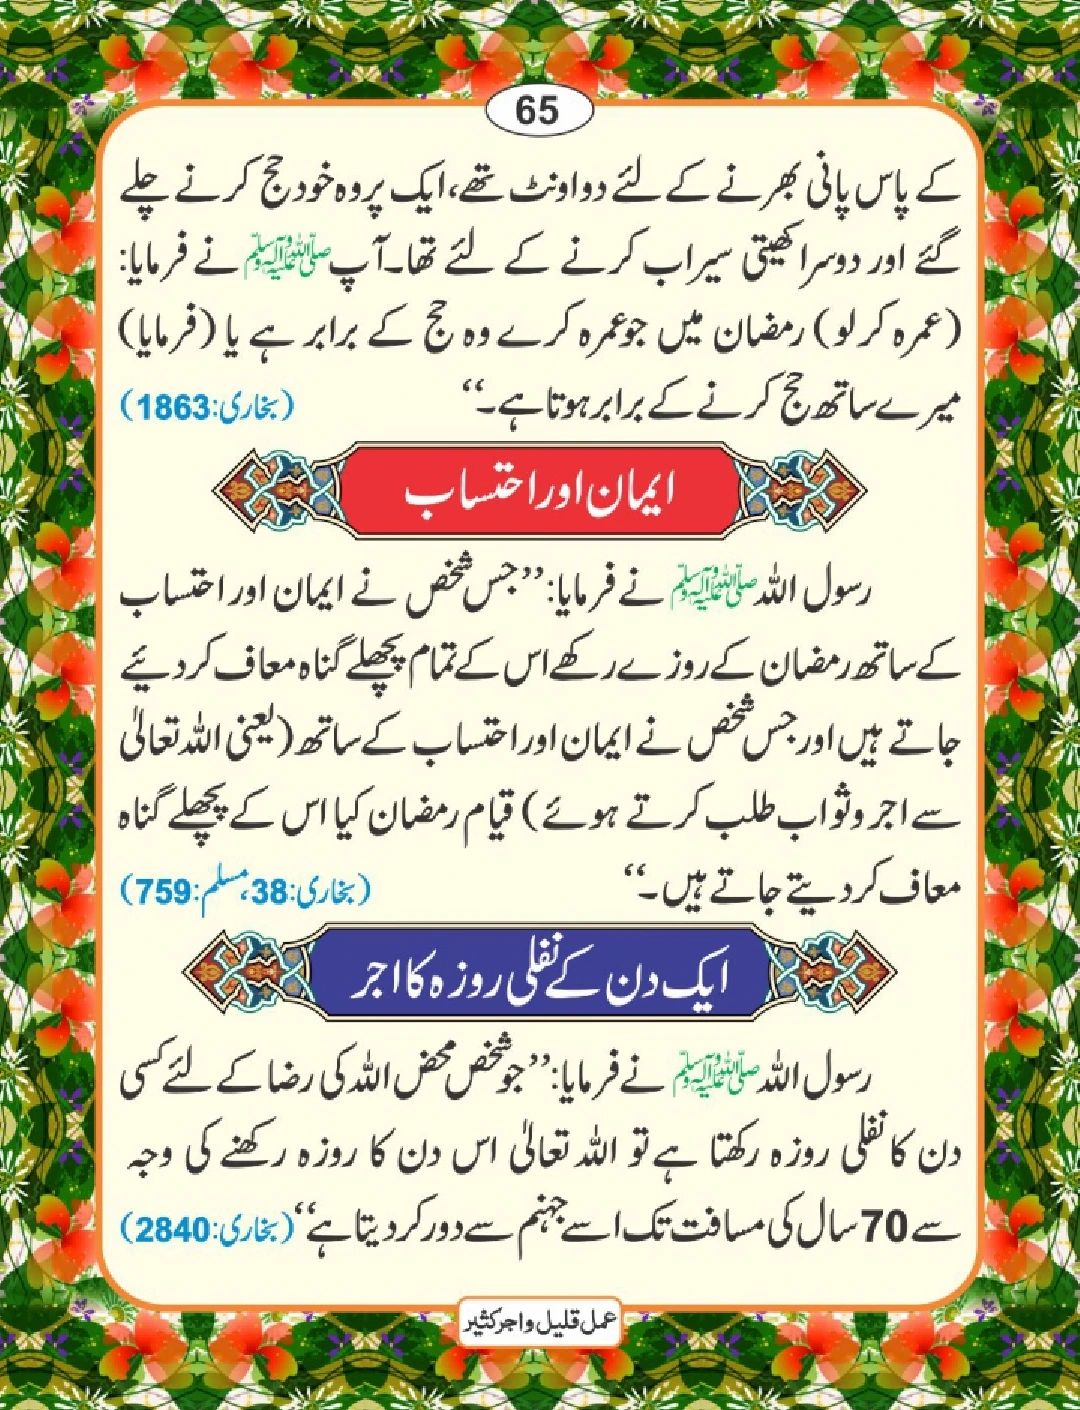 65
کے پاس پانی بھرنے کے لئے دو اونٹ تھے، ایک پر وہ خود حج کرنے چلے
گئے اور دوسرا کھیتی سیراب کرنے کے لئے تھا۔ آپ ﷺ نے فرمایا:
(عمرہ کر لو) رمضان میں جو عمرہ کرے وہ حج کے برابر ہے یا (فرمایا)
میرے ساتھ حج کرنے کے برابر ہوتا ہے۔‘‘ (بخاری:1863)
ایمان اور احتساب
رسول اللہ ﷺ نے فرمایا: ’’جس شخص نے ایمان اور احتساب
کے ساتھ رمضان کے روزے رکھے اس کے تمام پچھلے گناہ معاف کر دئیے
جاتے ہیں اور جس شخص نے ایمان اور احتساب کے ساتھ (یعنی اللہ تعالیٰ
سے اجر و ثواب طلب کرتے ہوئے) قیام رمضان کیا اس کے پچھلے گناہ
معاف کر دیتے جاتے ہیں۔‘‘ (بخاری:38، مسلم:759)
ایک دن کے نفلی روزہ کا اجر
رسول اللہ ﷺ نے فرمایا: ’’جو شخص محض اللہ کی رضا کے لئے کسی
دن کا نفلی روزہ رکھتا ہے تو اللہ تعالیٰ اس دن کا روزہ رکھنے کی وجہ
سے 70 سال کی مسافت تک اسے جہنم سے دور کر دیتا ہے‘‘ (بخاری:2840)
عمل قلیل و اجر کثیر